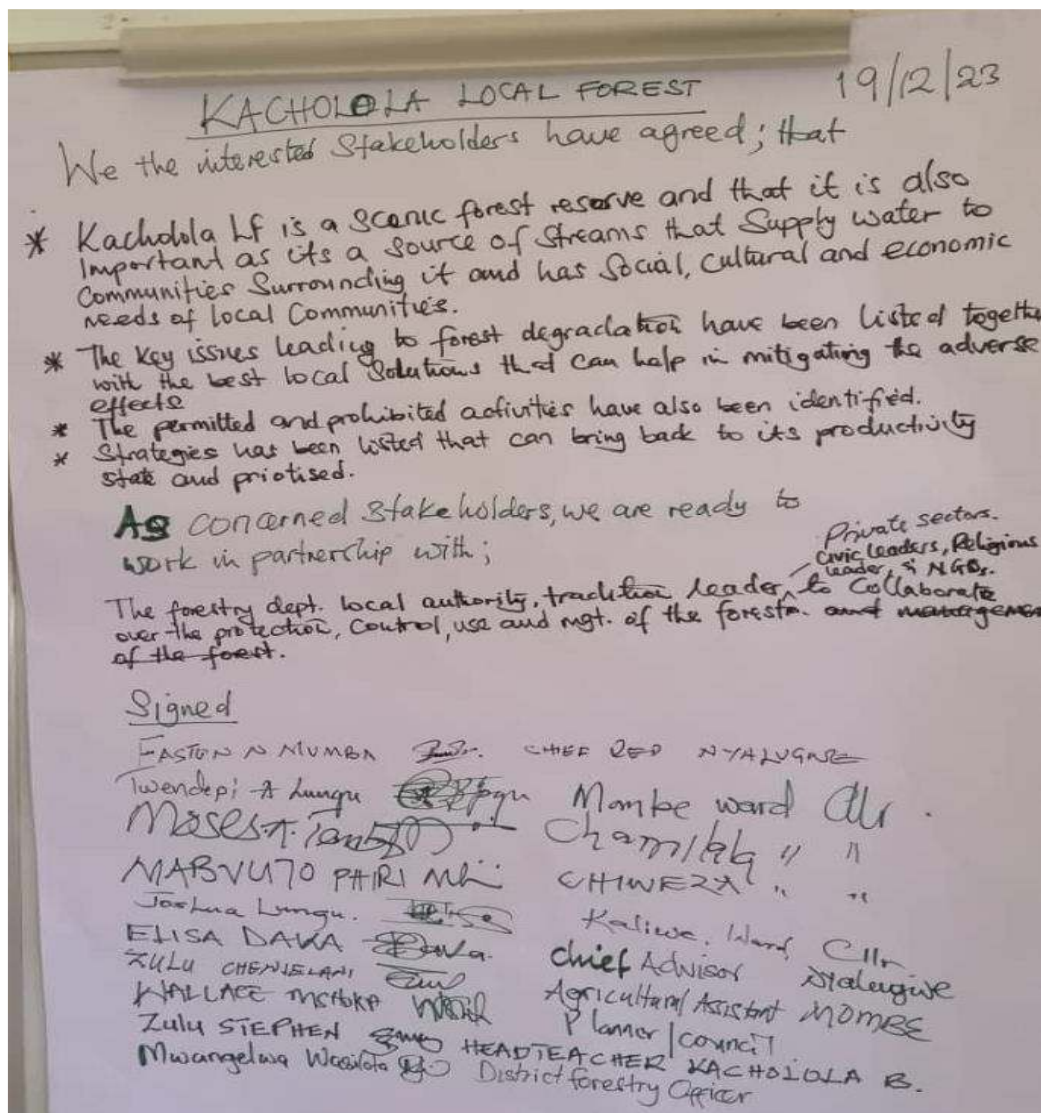 KACHOLOLA LOCAL FOREST 19/12/23
We the interested Stakeholders have agreed; that
* Kacholola Lf is a scenic forest reserve and that it is also
important as its a source of Streams that Supply water to
Communities Surrounding it and has Social, Cultural and economic
needs of local Communities.
* The key issues leading to forest degradation have been listed togethe
with the best local Solutions that can help in mitigating the adverse
effects
* The permitted and prohibited activities have also been identified.
* Strategies has been listed that can bring back to its productivity
state and priotised.
As concerned Stakeholders, we are ready to
work in partnership with;
Private sectors.
Civic leaders, Religious
leader, & NGOs.
The forestry dept. local authority, tradition leader, to Collaborate
over the protection, Control, use and mgt. of the forest. and managemen
of the forest.
Signed
EASTON N MUMBA CHIEF REP NYALUGWE
Twendepi A Lungu Mombe ward Cllr.
Moses Chamilala " "
MABVUTO PHIRI CHIWEZA " "
Joshua Lungu. Kaliwe. Ward Cllr
ELISA DAKA Chief Advisor Nyalugwe
ZULU Agricultural Assistant MOMBE
WALLACE Planner/council
ZULU STEPHEN HEADTEACHER KACHOLOLA B.
Mwangelwa District forestry Officer